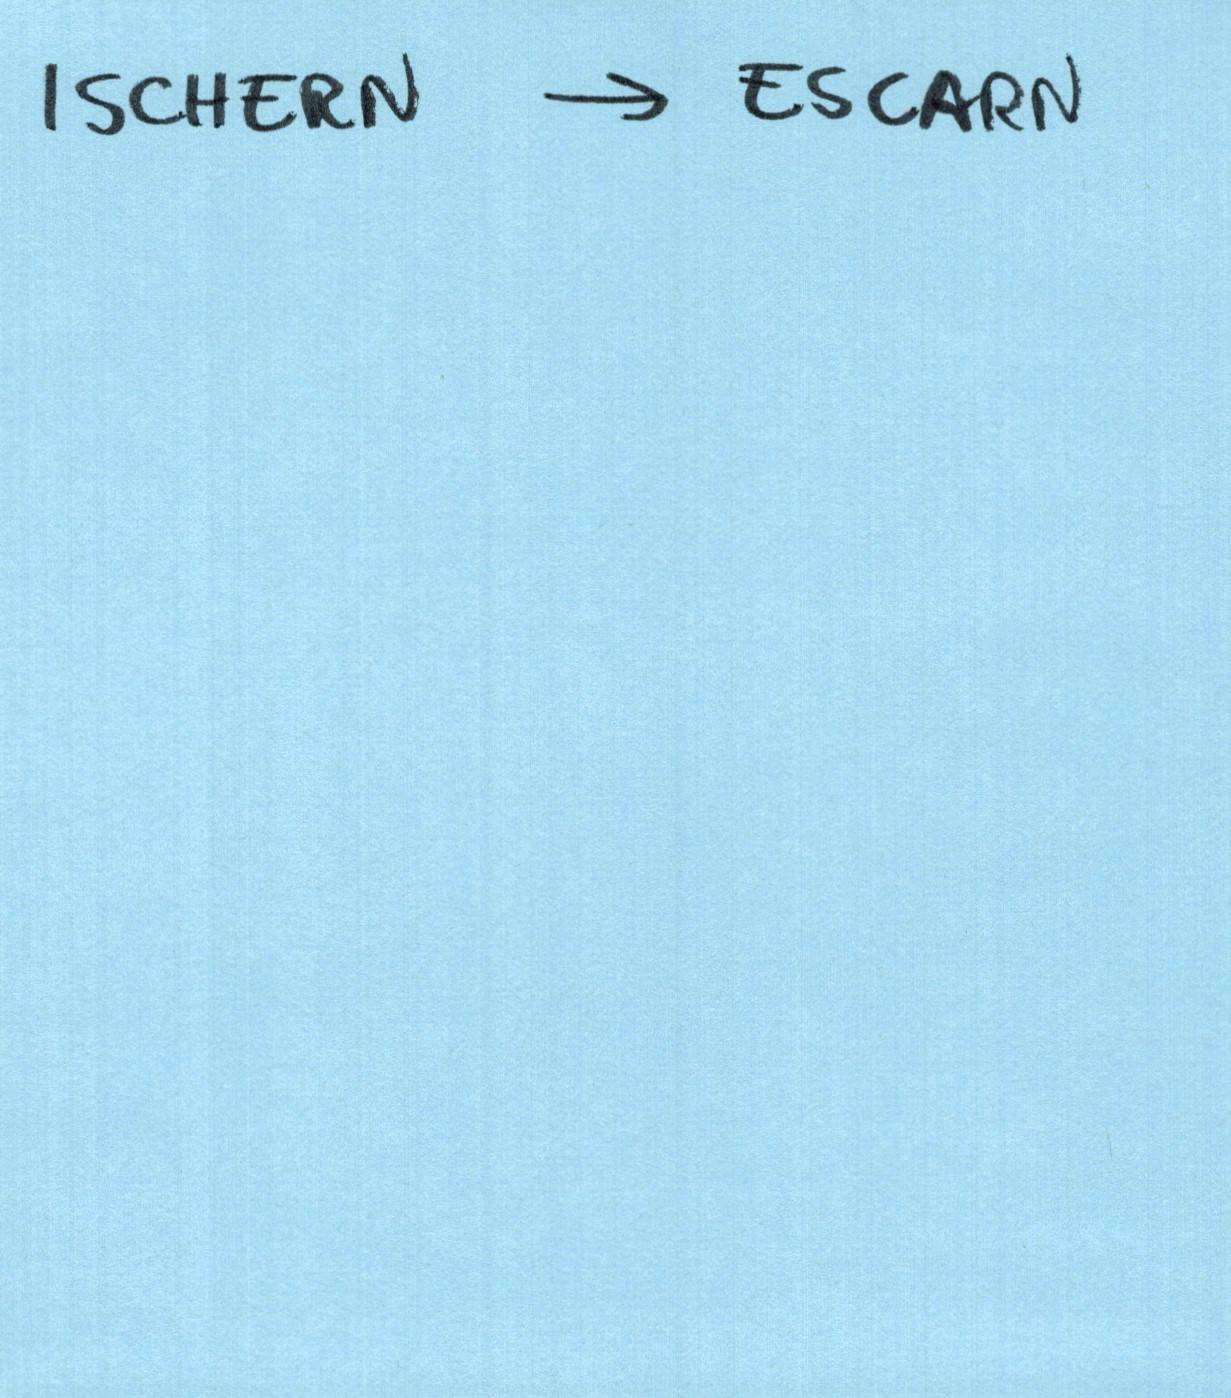 ISCHERN → ESCARN